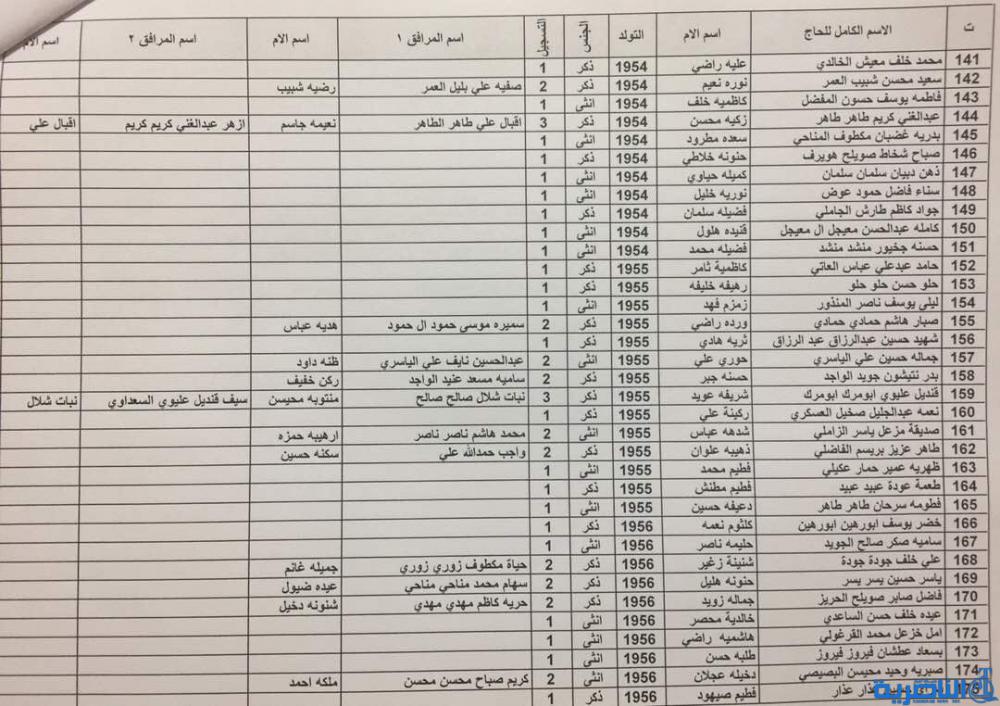 ت الاسم الكامل للحاج اسم الام التولد الجنس التسجيل اسم المرافق ١ اسم الام اسم المرافق ٢ اسم الام
141 محمد خلف معيش الخالدي عليه راضي 1954 ذكر 1
142 سعيد محسن شبيب العمر نوره نعيم 1954 ذكر 2 صفيه علي بليل العمر رضيه شبيب
143 فاطمه يوسف حسون المفضل كاظميه خلف 1954 انثى 1
144 عبدالغني كريم طاهر طاهر زكيه محسن 1954 ذكر 3 اقبال علي طاهر الطاهر نعيمه جاسم ازهر عبدالغني كريم كريم اقبال علي
145 بدريه غضبان مكطوف المناحي سعده مطرود 1954 انثى 1
146 صباح شخاط صويلح هويرف حنونه خلاطي 1954 ذكر 1
147 ذهن دبيان سلمان سلمان كميله حياوي 1954 انثى 1
148 سناء فاضل حمود عوض نوريه خليل 1954 انثى 1
149 جواد كاظم طارش الجاملي فضيله سلمان 1954 ذكر 1
150 كامله عبدالحسن معيجل ال معيجل قنيده هلول 1954 انثى 1
151 حسنه جخيور منشد منشد فضيله محمد 1954 انثى 1
152 حامد عبدعلي عباس العاتي كاظمية ثامر 1955 ذكر 1
153 حلو حسن حلو حلو رهيفه خليفه 1955 ذكر 1
154 ليلى يوسف ناصر المنذور زمزم فهد 1955 انثى 1
155 صبار هاشم حمادي حمادي ورده راضي 1955 ذكر 2 سميره موسى حمود ال حمود هديه عباس
156 شهيد حسين عبدالرزاق عبد الرزاق ثريه هادي 1955 ذكر 1
157 جماله حسين علي الياسري حوري علي 1955 انثى 2 عبدالحسين نايف علي الياسري ظنه داود
158 بدر نتيشون جويد الواجد حسنه جبر 1955 ذكر 2 ساميه مسعد عنيد الواجد ركن خفيف
159 قنديل عليوي ابومرك ابومرك شريفه عويد 1955 ذكر 3 نبات شلال صالح صالح منتوبه محيسن سيف قنديل عليوي السعداوي نبات شلال
160 نعمه عبدالجليل صخيل العسكري ركينة علي 1955 ذكر 1
161 صديقة مزعل ياسر الزاملي شدهه عباس 1955 انثى 2 محمد هاشم ناصر ناصر ارهيبه حمزه
162 طاهر عزيز بريسم الفاضلي ذهيبه علوان 1955 ذكر 2 واجب حمدالله علي سكنه حسين
163 ظهريه عمير حمار عكيلي فطيم محمد 1955 انثى 1
164 طعمة عودة عبيد عبيد فطيم مطنش 1955 ذكر 1
165 فطومه سرحان طاهر طاهر دعيفه حسين 1955 انثى 1
166 خضر يوسف ابورهين ابورهين كلثوم نعمه 1956 ذكر 1
167 ساميه صكر صالح الجويد حليمه ناصر 1956 انثى 1
168 علي خلف جودة جودة شنينة زغير 1956 ذكر 2 حياة مكطوف زوري زوري جميله غانم
169 ياسر حسين يسر يسر حنونه هليل 1956 ذكر 2 سهام محمد مناحي مناحي عيده ضيول
170 فاضل صابر صويلح الحريز جماله زويد 1956 ذكر 2 حريه كاظم مهدي مهدي شنونه دخيل
171 عيده خلف حسن الساعدي خالدية محصر 1956 انثى 1
172 امل خزعل محمد القرغولي هاشميه راضي 1956 انثى 1
173 بسعاد عطشان فيروز فيروز طلبه حسن 1956 انثى 1
174 صبريه وحيد محيسن البصيصي دخيله عجلان 1956 انثى 2 كريم صباح محسن محسن ملكه احمد
175 عذار فطيم صيهود 1956 ذكر 1
الناصرية